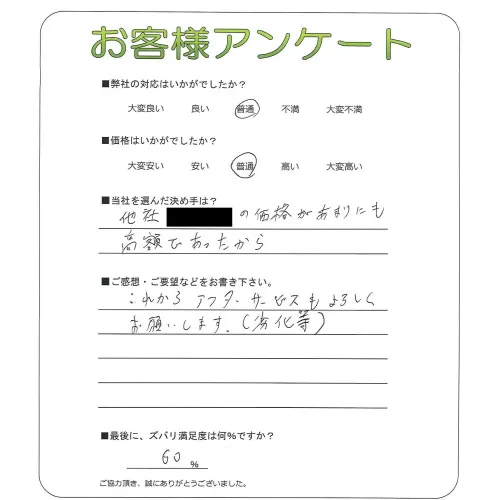 お客様アンケート
■弊社の対応はいかがでしたか？
大変良い 良い 普通 不満 大変不満
■価格はいかがでしたか？
大変安い 安い 普通 高い 大変高い
■当社を選んだ決め手は？
他社 の価格があまりにも
高額であったから
■ご感想・ご要望などをお書き下さい。
これからアフターサービスもよろしく
お願いします。(劣化等)
■最後に、ズバリ満足度は何%ですか？
60 %
ご協力頂き、誠にありがとうございました。